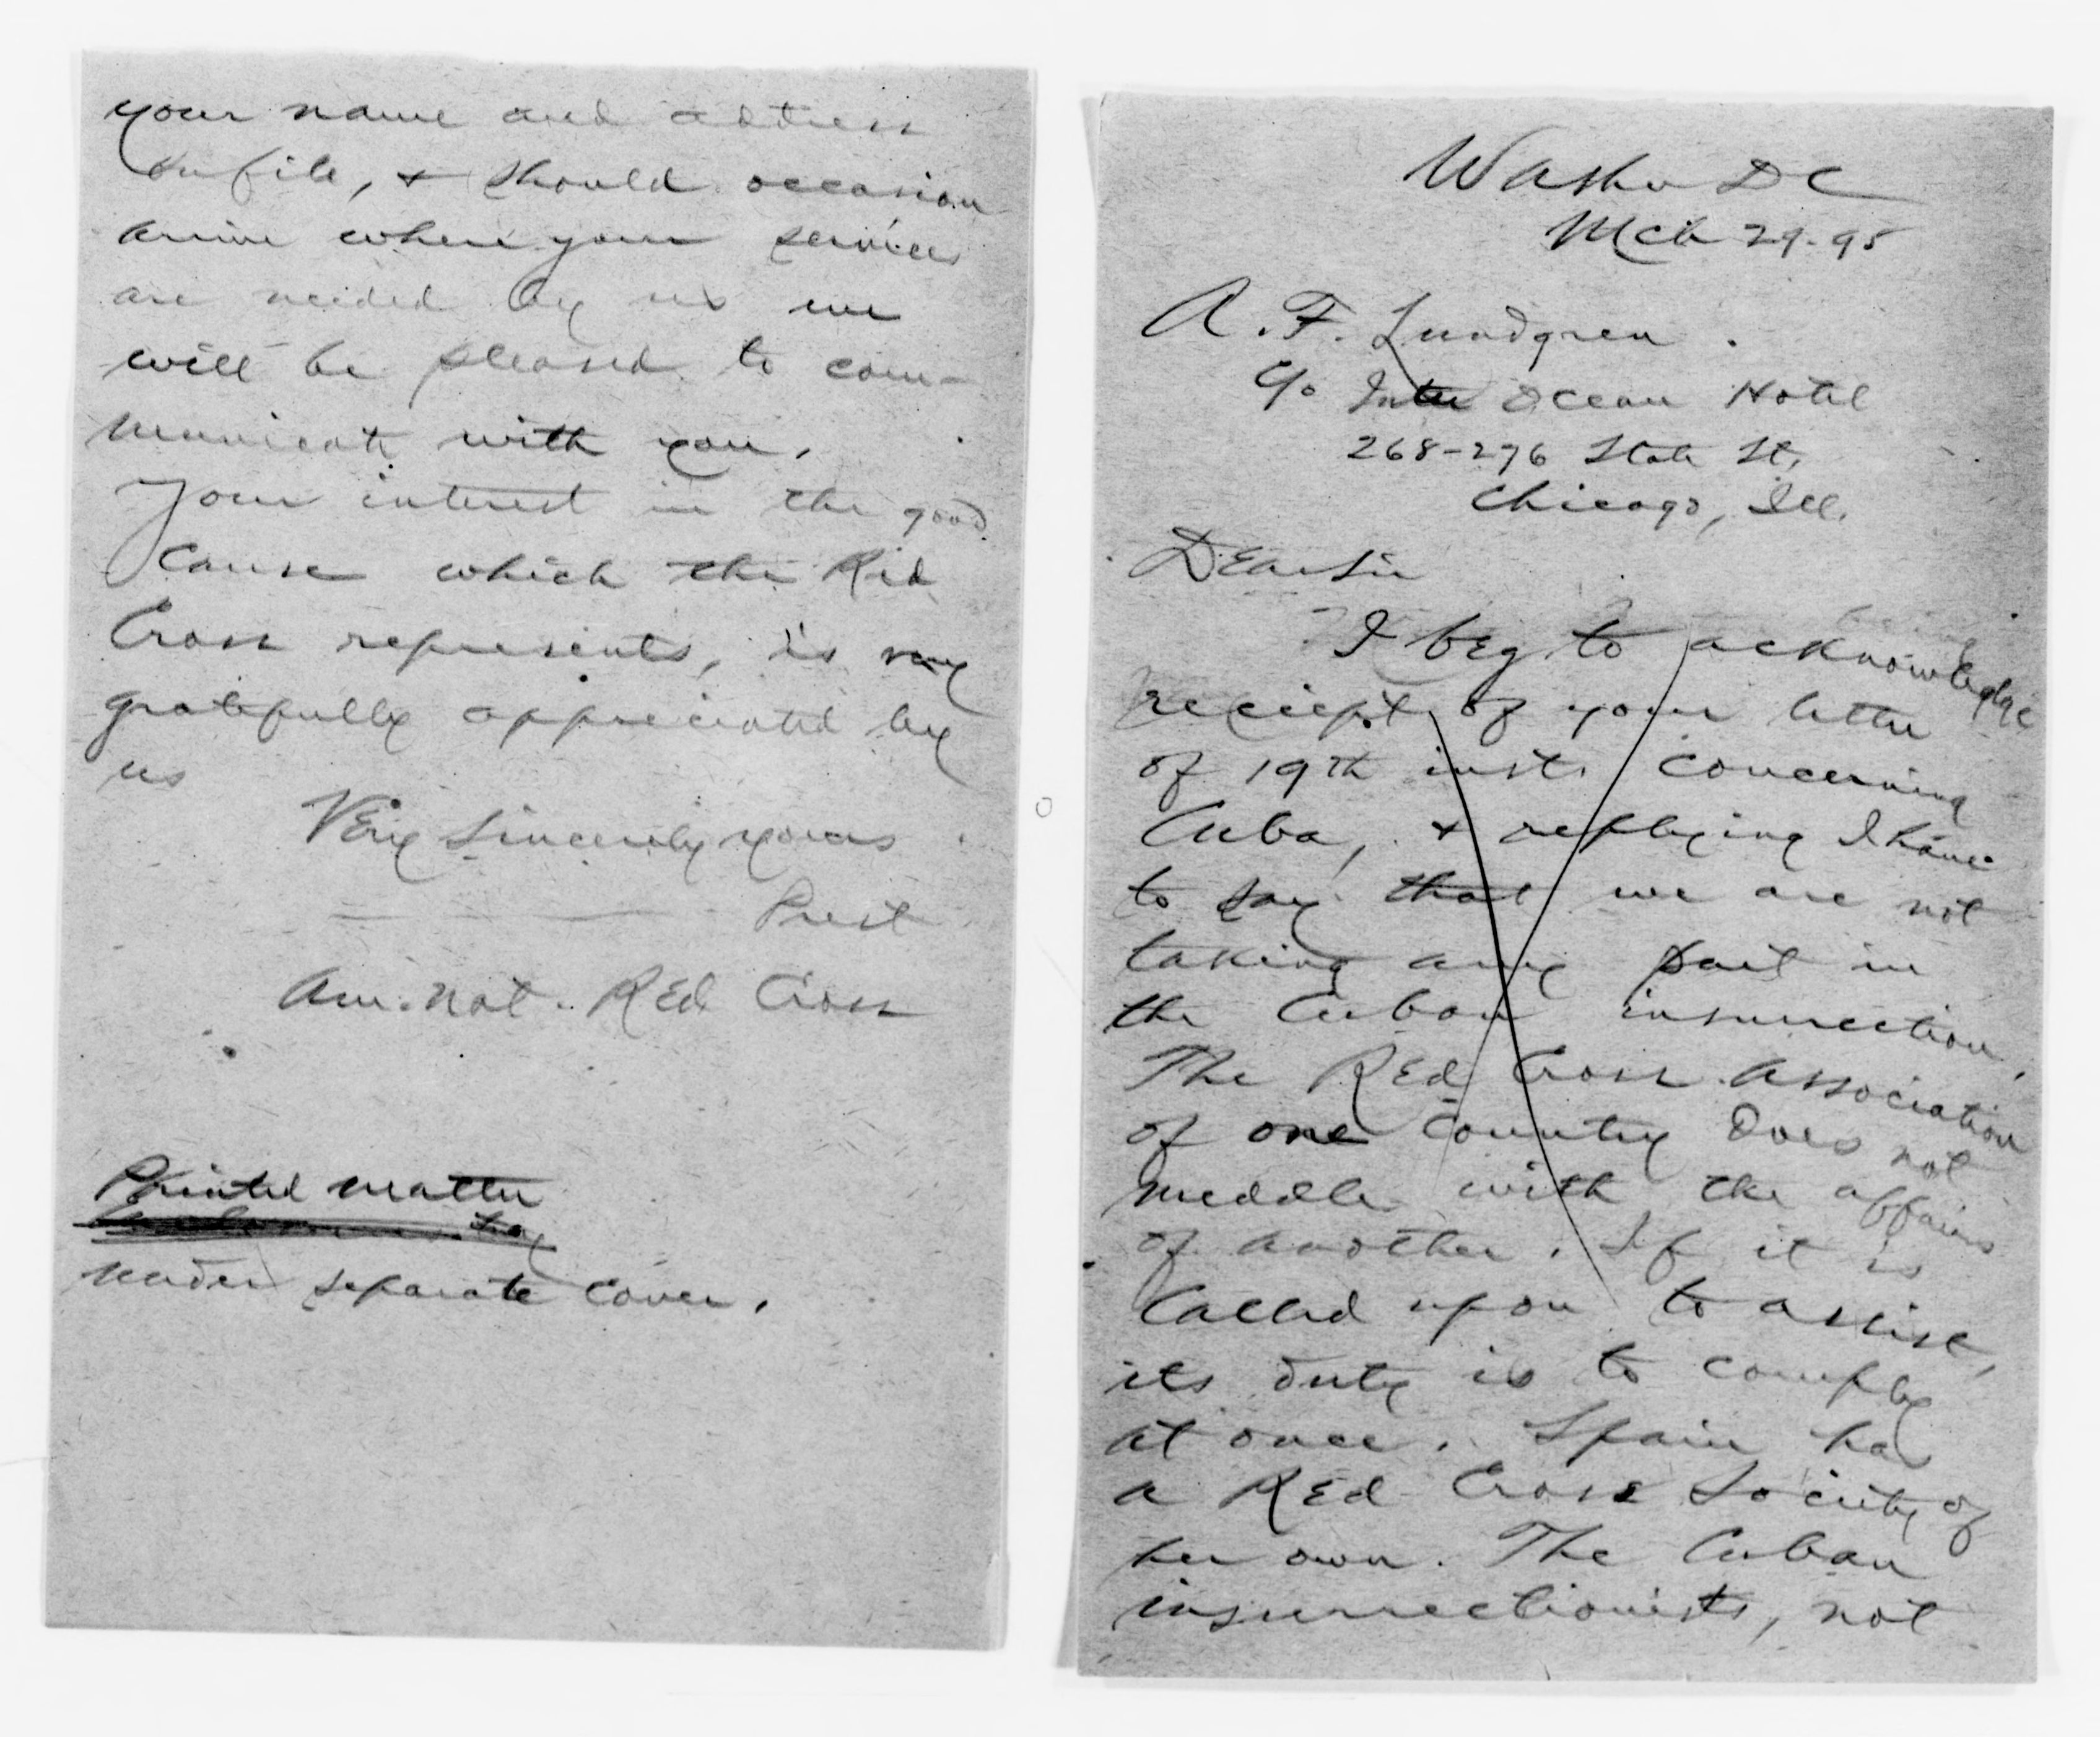 your name and address
on file, & should occasion
arise where your services
are needed by us we
will be pleased to com-
municate with you.
Your interest in the good
cause which the Red
Cross represents, is very
gratefully appreciated by
us
Very Sincerely yours
Prest
Am. Nat. Red Cross
Printed matter
under separate cover.
Washn DC
Mch 29-95
A. F. Lundgren.
c/o Inter Ocean Hotel
268-276 State St,
Chicago, Ill.
Dear Sir
I beg to acknowledge
reciept of your letter
of 19th inst. concerning
Cuba, & replying I have
to say that we are not
taking any part in
the Cuban insurrection.
The Red Cross Association
of one country does not
meddle with the affairs
of another. If it is
called upon to assist,
its duty is to comply
at once. Spain has
a Red Cross Society of
her own. The Cuban
insurrectionists, not